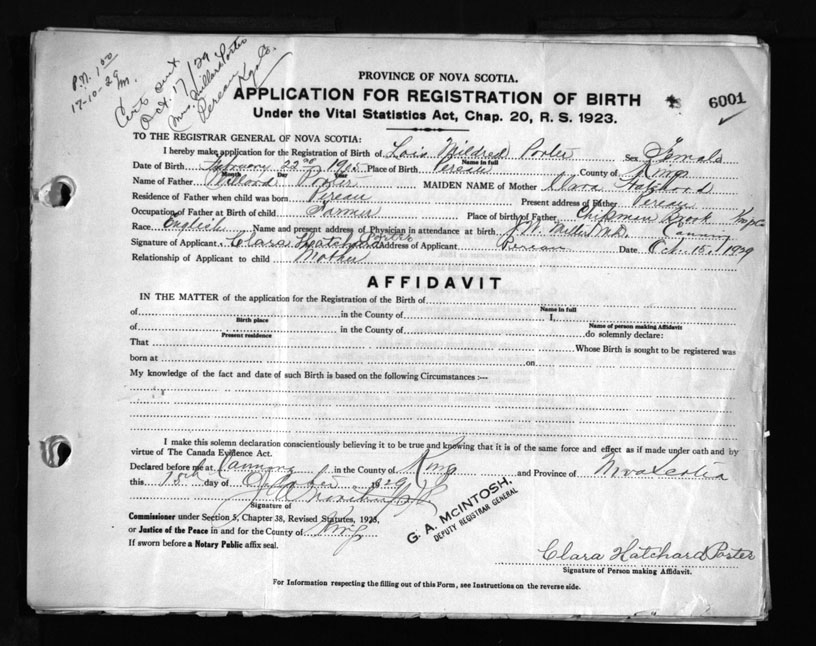 P.N. 1.00
17-10-29
Certs out
Oct. 17/29
Mrs. Porter
Pereau
PROVINCE OF NOVA SCOTIA.
APPLICATION FOR REGISTRATION OF BIRTH
6001
Under the Vital Statistics Act, Chap. 20, R. S. 1923.
TO THE REGISTRAR GENERAL OF NOVA SCOTIA:
I hereby make application for the Registration of Birth of Lois Mildred Porter Sex Female
Name in full
Date of Birth February 22nd Place of Birth Pereau County of Kings
Month Day Year
Name of Father Porter MAIDEN NAME of Mother Clara Hatchard
Residence of Father when child was born Pereau Present address of Father Pereau
Occupation of Father at Birth of child Farmer Place of birth of Father Chipman Brook Kings Co
Race English Name and present address of Physician in attendance at birth J. W. Miller M.D. Canning
Signature of Applicant Clara Hatchard Porter Address of Applicant Pereau Date Oct. 15, 1929
Relationship of Applicant to child Mother
AFFIDAVIT
IN THE MATTER of the application for the Registration of the Birth of
Name in full
of in the County of I,
Birth place Name of person making Affidavit
of in the County of do solemnly declare:
Present residence
That Whose Birth is sought to be registered was
born at on
My knowledge of the fact and date of such Birth is based on the following Circumstances :—
I make this solemn declaration conscientiously believing it to be true and knowing that it is of the same force and effect as if made under oath and by
virtue of The Canada Evidence Act.
Declared before me at Canning in the County of Kings and Province of Nova Scotia
this 15th day of October 1929
Signature of
Commissioner under Section 5, Chapter 38, Revised Statutes, 1923,
or Justice of the Peace in and for the County of Kings
If sworn before a Notary Public affix seal.
G. A. McINTOSH,
DEPUTY REGISTRAR GENERAL
Clara Hatchard Porter
Signature of Person making Affidavit.
For Information respecting the filling out of this Form, see Instructions on the reverse side.